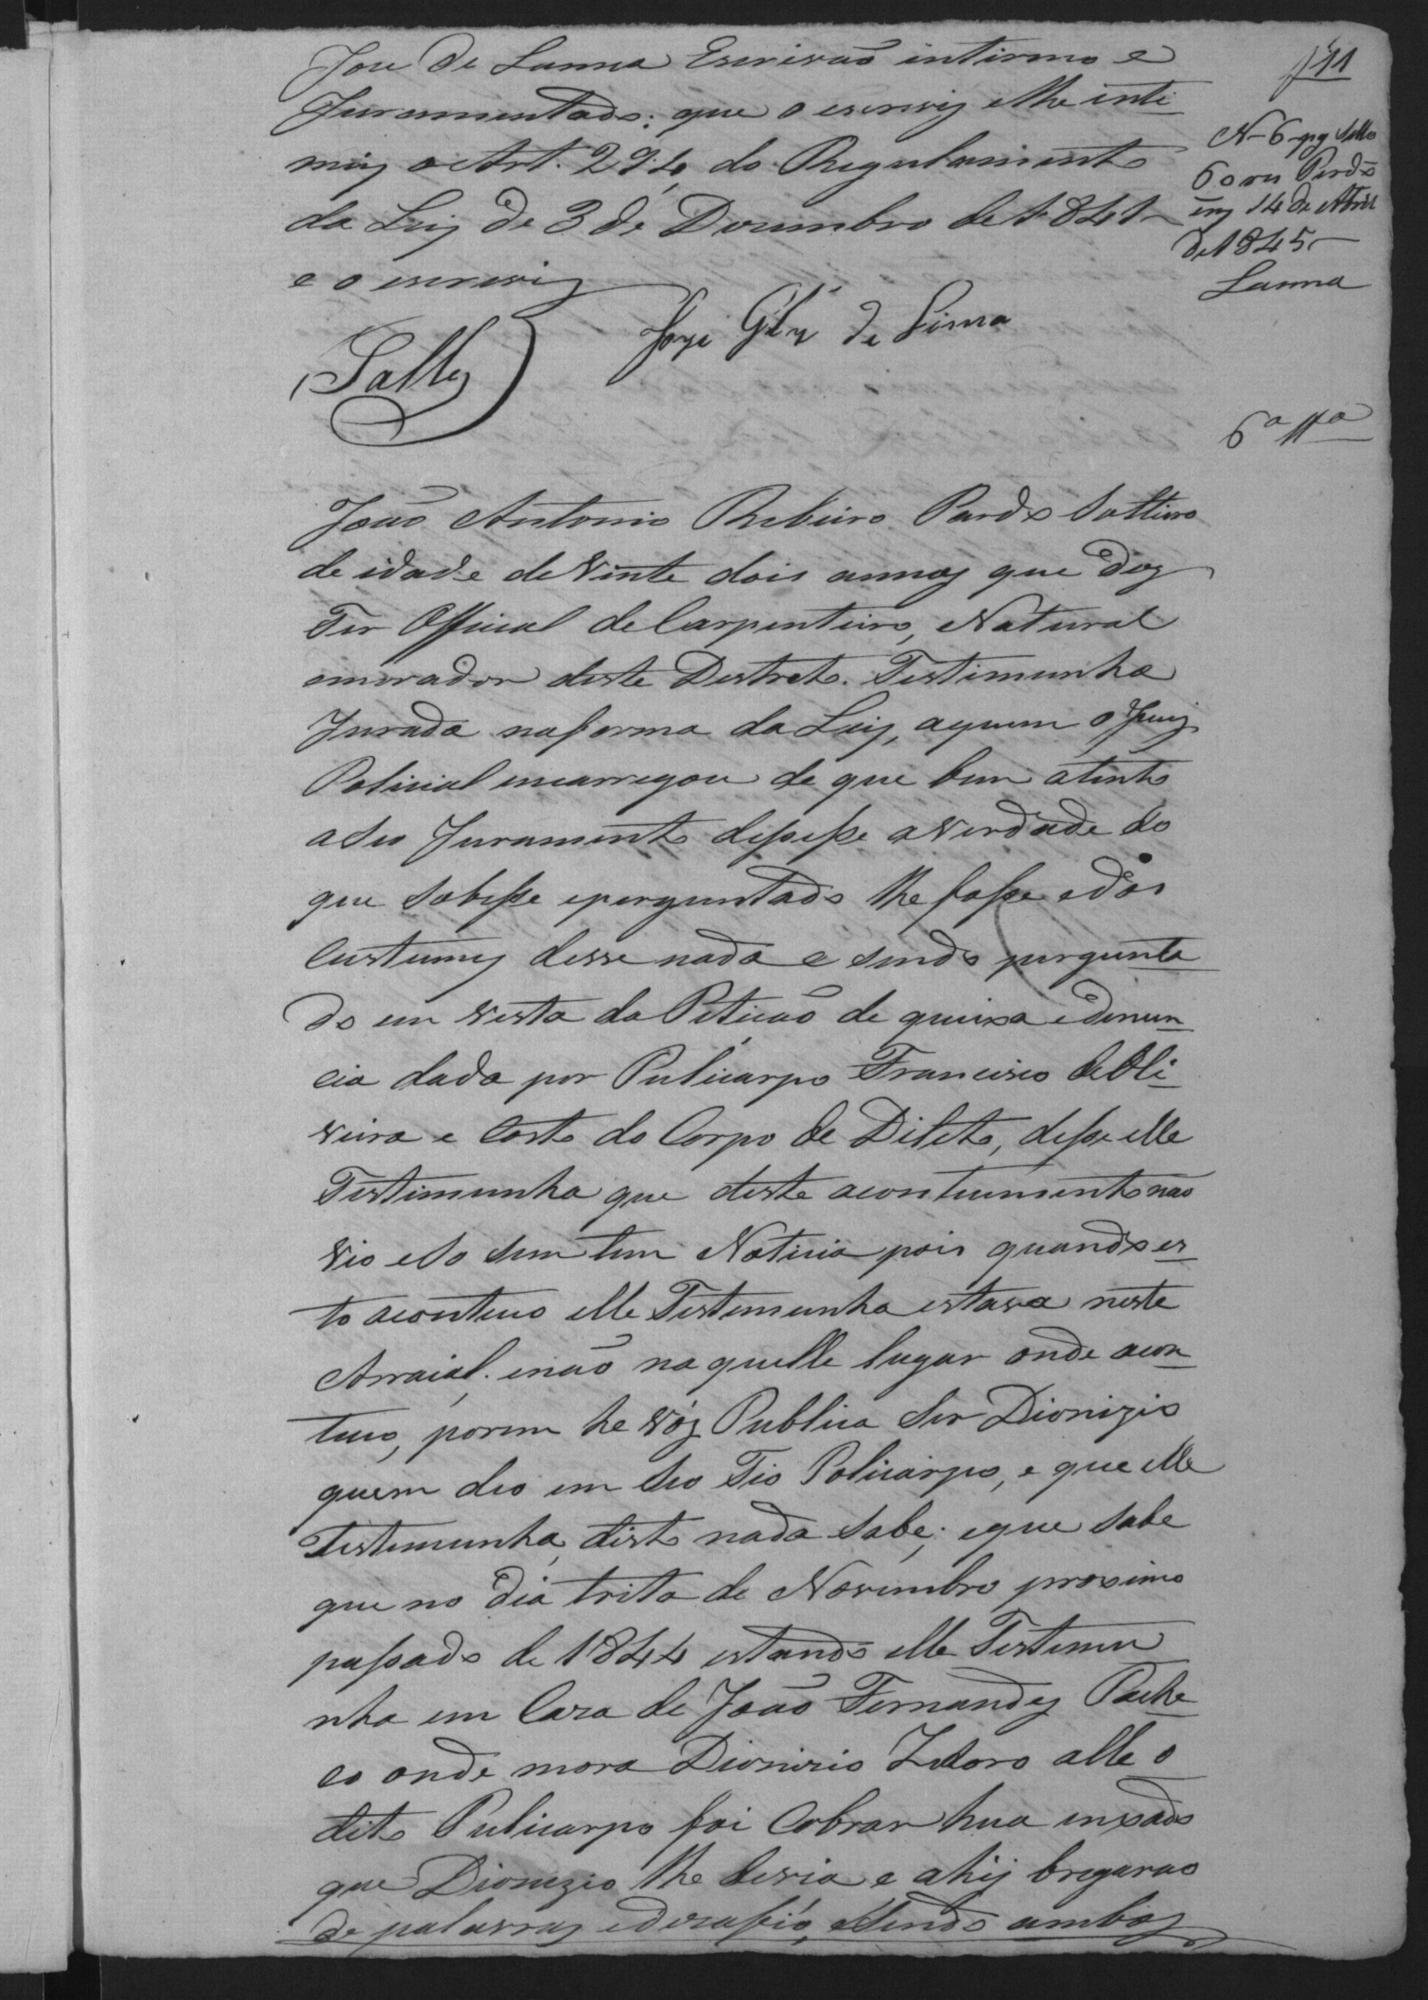 Joze de Lanna Escrivaõ intirino e
Juramentado; que o escrevy e lhe inti
mey o Art. 294 do Regulamento
da Ley de 3 de Dezembro de 1841
e o escrevy
Joze Glz de Lima
Salles
f 11
N 6 pg Sello
60 reis Perdõ
em 14 de Abril
de 1845
Lanna
6ª ttª
Joaõ Antonio Rebeiro Pardo Solteiro
de idade de Vinte dois annos que diz
Ser Official de Carpenteiro, Natural
emorador deste Destreto. Testimunha
Jurada naforma da Ley, aquem o Juiz
Policial incarregou de que bem atento
a seo Juramento dissesse averdade do
que Sobesse eperguntado lhe fosse edos
Custumes desse nada e sendo pergunta
do em vesta da Peticaõ de queixa edenun
cia dada por Pulicarpo Francisco de Oli
veira e Costo do Corpo de Dileto, disse elle
Testimunha que deste acontecimento nao
vio e so sim tem Noticia pois quando es
to aconteceo elle Testemunha estava neste
Arraial. enaõ naquelle lugar onde acon
teceo, porem he vóz Publica Ser Dionizio
quem deo em seo Tio Policarpo, e que elle
Testemunha, disto nada Sabe; eque Sabe
que no dia trita de Novembro proximo
passado de 1844 estando elle Testemu
nha em Caza de Joaõ Fernandes Pache
co onde mora Dionizio Zidoro alle o
dito Pulicarpo foi Cobrar hua inxada
que Dionizio lhe devia e ahij bregarao
de palavras edezafio, eSendo ambos